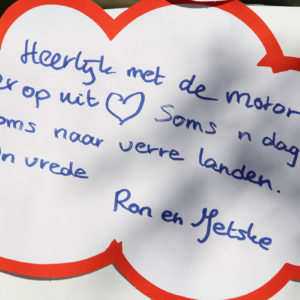 Heerlijk met de motor
er op uit ♡ Soms n dag
oms naar verre landen.
In vrede
Ron en Jetske